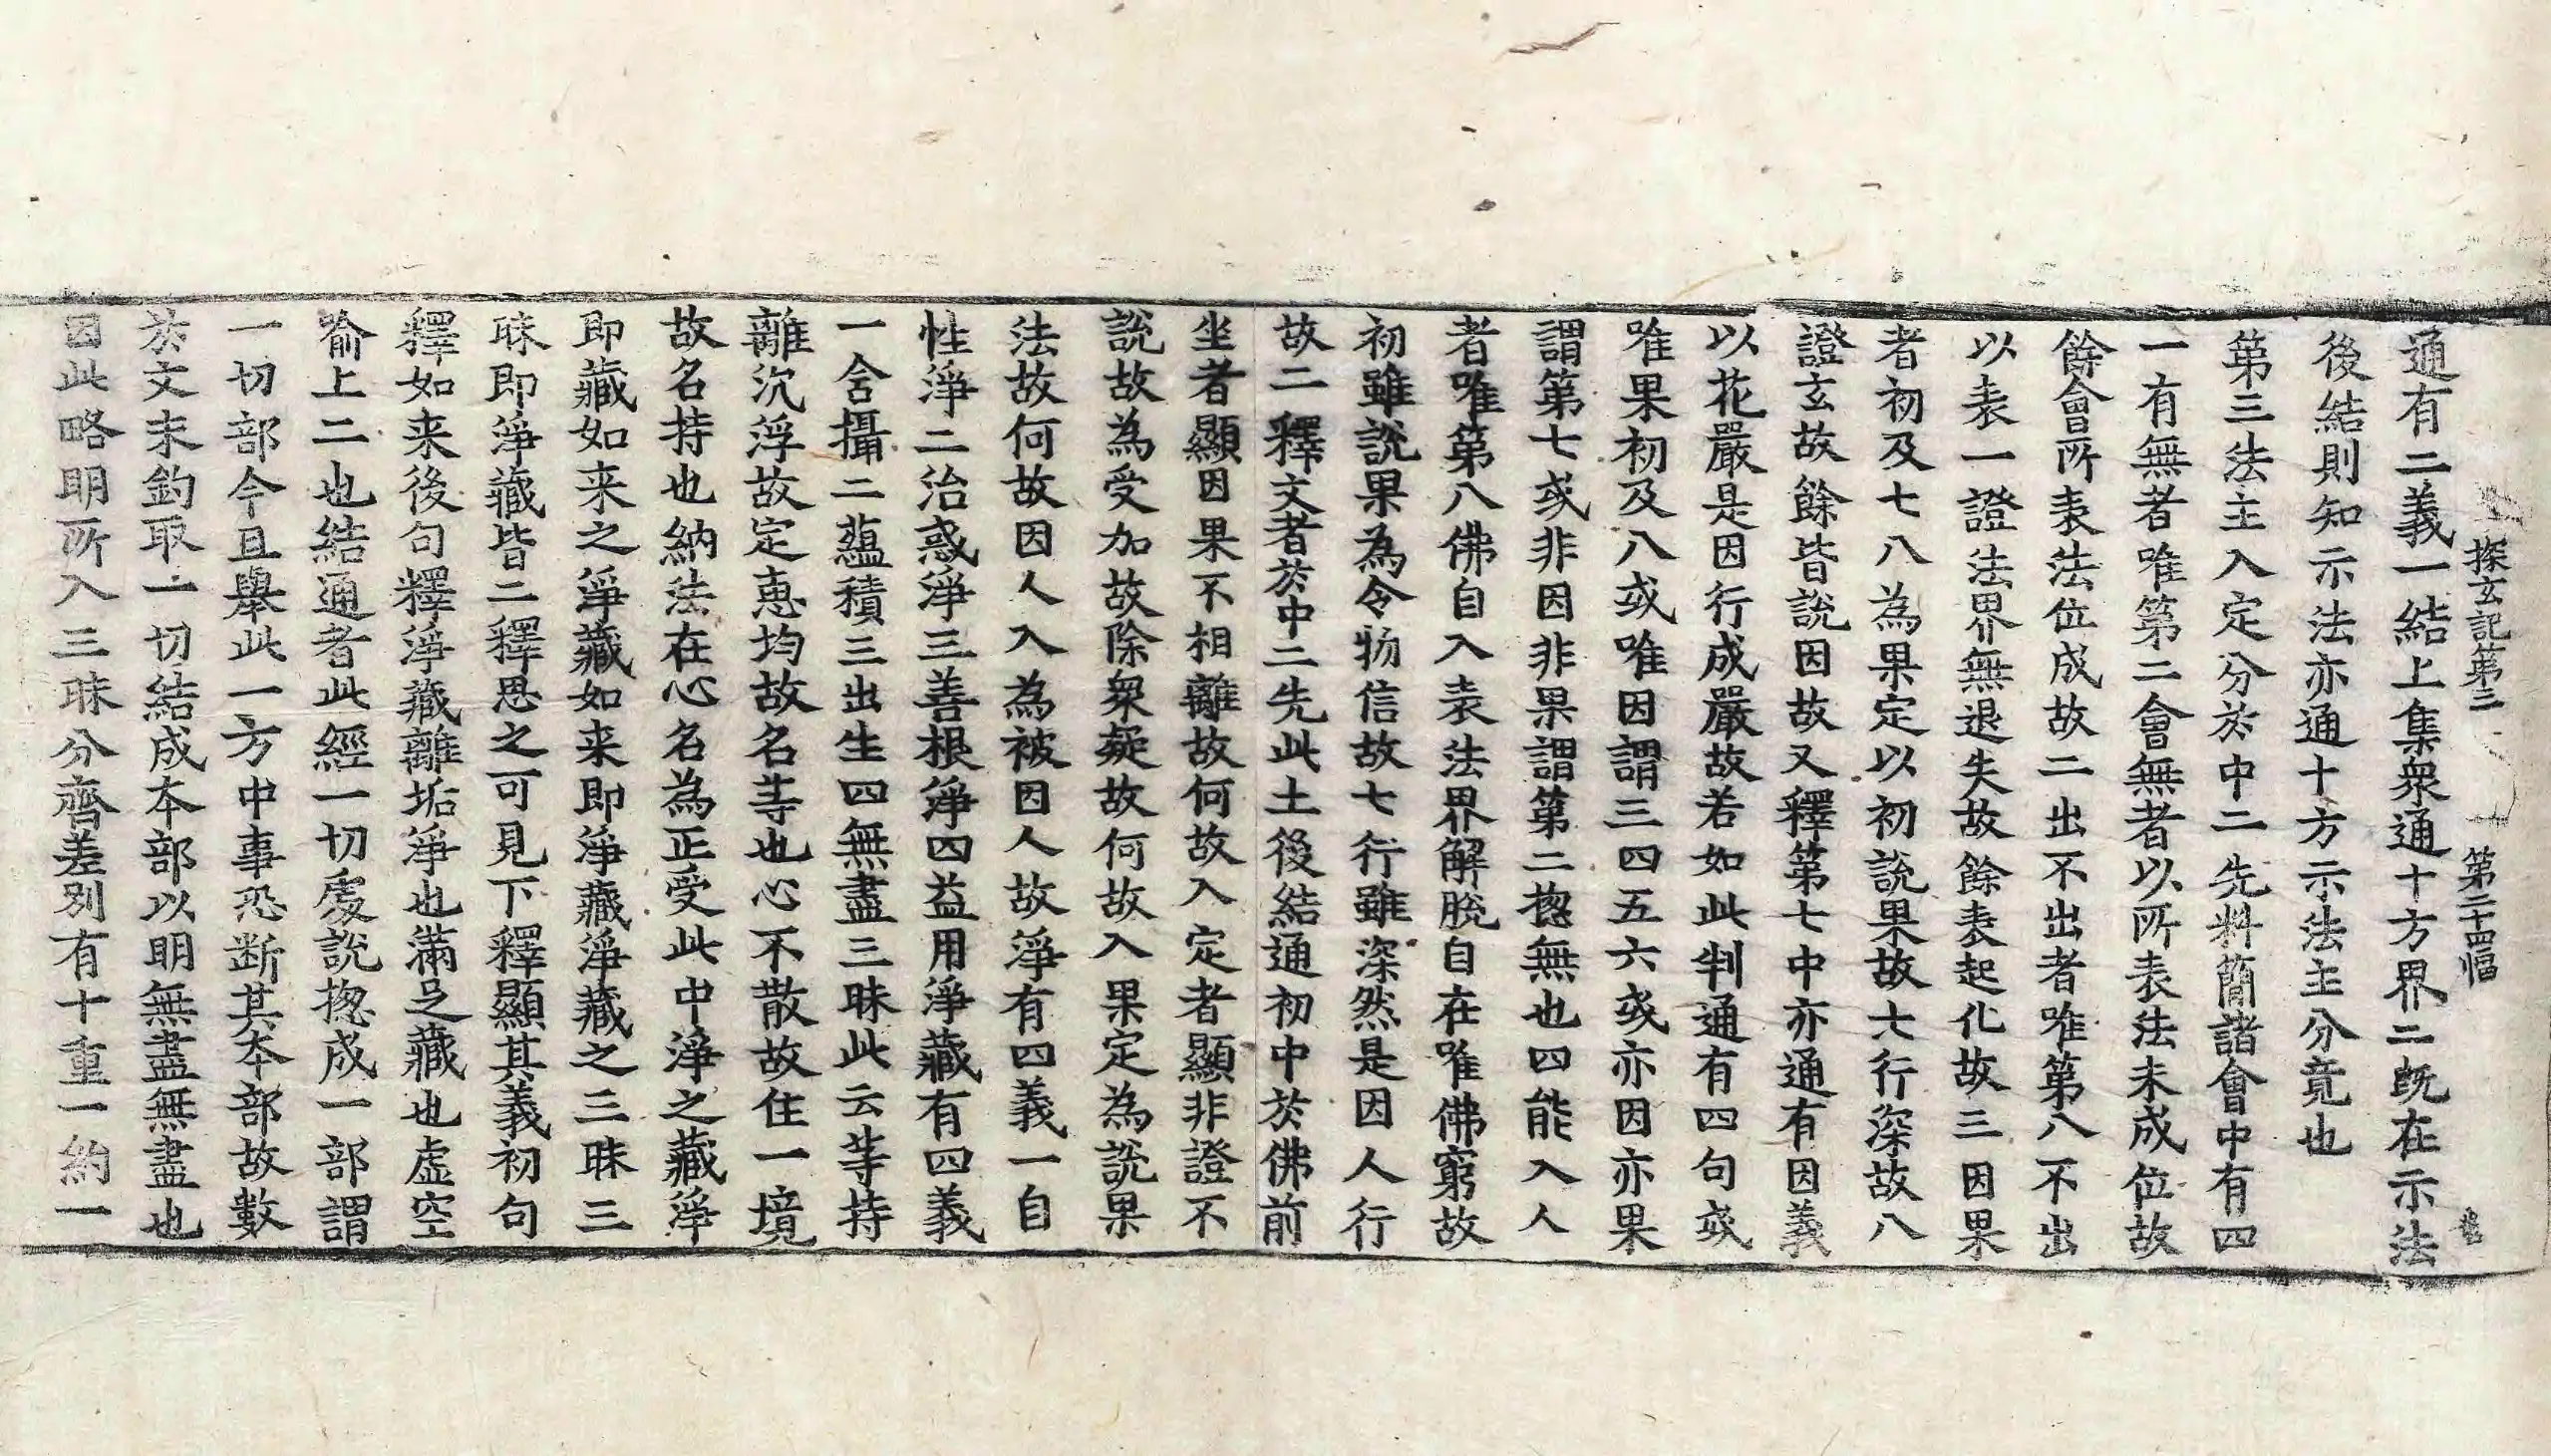 探玄記第三 第二十四幅
通有二義一結上集衆通十方界二既在示法
後結則知示法亦通十方示法主分竟也
第三法主入定分於中二先料簡諸會中有四
一有無者唯第二會無者以所表法未成位故
餘會所表法位成故二出不出者唯第八不出
以表一證法界無退失故餘表起化故三因果
者初及七八為果定以初說果故六行深故八
證玄故餘皆說因故又釋第七中亦通有因義
以花嚴是因行成嚴故若如此判通有四句或
唯果初及八或唯因謂三四五六或亦因亦果
謂第七或非因非果謂第二揔無也四能入人
者唯第八佛自入表法界解脫自在唯佛窮故
初雖說果為令物信故七行雖深然是因人行
故二釋文者於中二先此土後結通初中於佛前
坐者顯因果不相離故何故入定者顯非證不
說故為受加故除衆疑故何故入果定為說果
法故何故因人入為被因人故淨有四義一自
性淨二治惑淨三善根淨四益用淨藏有四義
一含攝二蘊積三出生四無盡三昧此云等持
離沉浮故定恵均故名等也心不散故住一境
故名持也納法在心名為正受此中淨之藏淨
即藏如来之淨藏如来即淨藏淨藏之三昧三
昧即淨藏皆二釋思之可見下釋顯其義初句
釋如来後句釋淨藏離垢淨也滿足藏也虛空
喻上二也結通者此經一切處說揔成一部謂
一切部今且舉此一方中事恐断其本部故數
於文末釣取一切結成本部以明無盡無盡也
因此略明所入三昧分齊差別有十重一約一